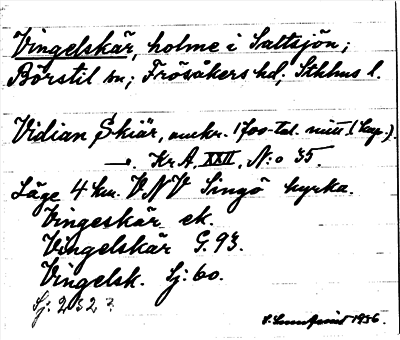 Vingelskär, holme i Saltsjön;
Börstil sn; Frösåkers hd; Sthlms l.
Vidian Skiär, omkr. 1700-tal. mitt. (kop.).
—„— Kr.A. XXII. N:o 35.
Läge 4 km. V.N.V Singö kyrka.
Vingeskär ek.
Vingelskär G. 93.
Vingelsk. Sj: 60.
Sj: 232 ?
1936.